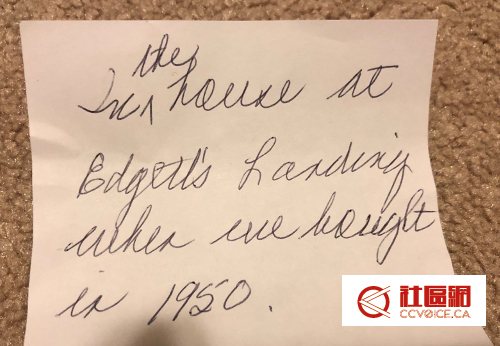 In the house at
Edgett's Landing
when we bought
in 1950.
社區網
CCVOICE.CA